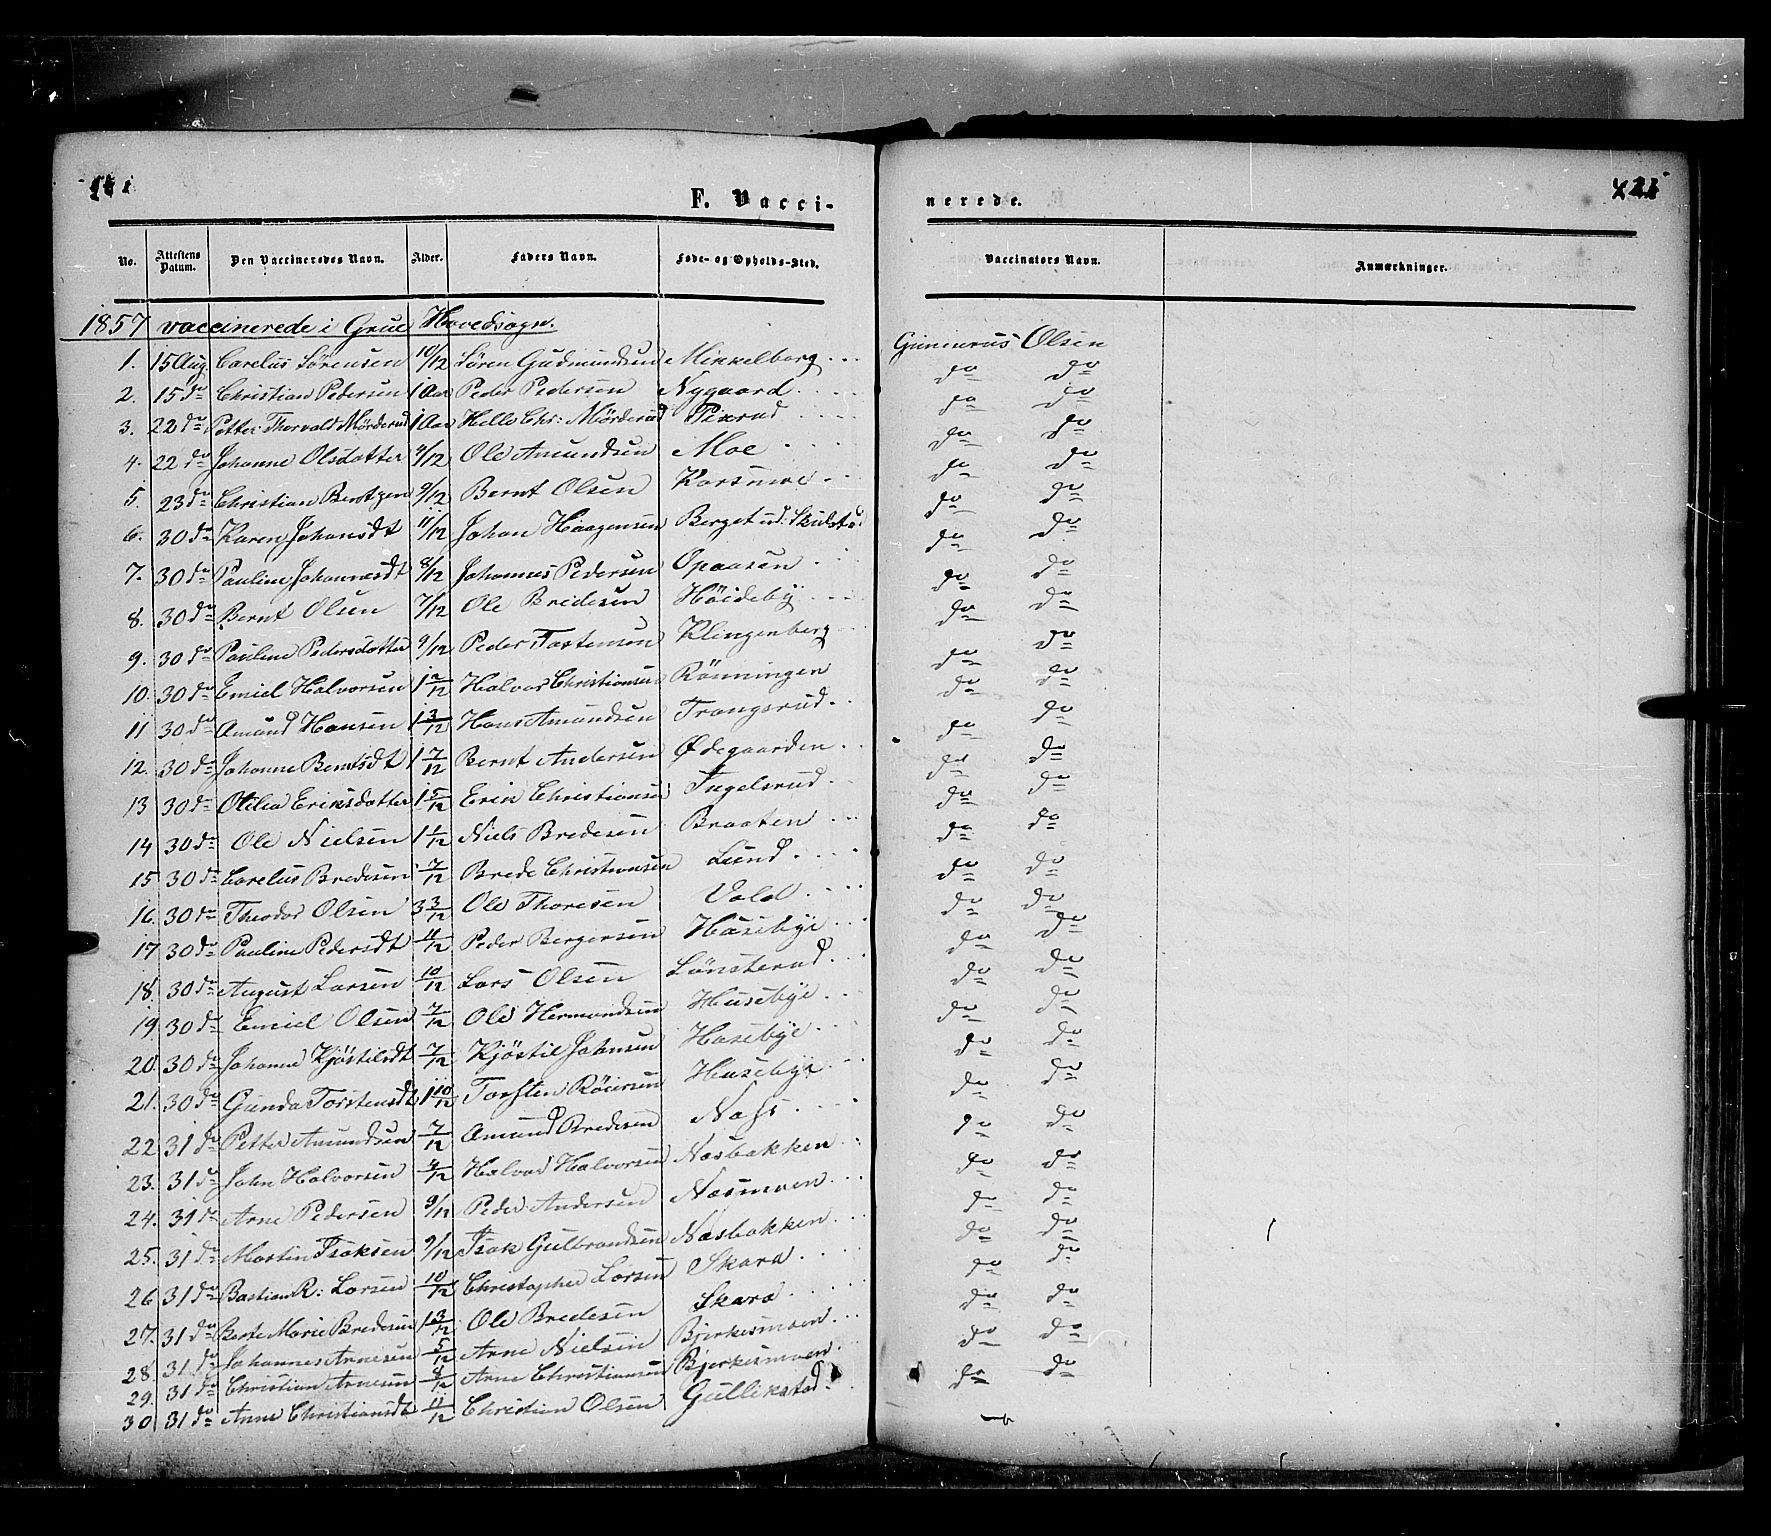 F. Vacci-
nerede.
No. Attestens Datum. Den Vaccineredes Navn. Alder. Faders Navn. Føde- og Opholds-Sted. Vaccinators Navn. Anmærkninger.
1857 vaccinerede i Grue Hovedsogn.
1. 15 Aug Carelius Sörensen 10/12 Sören Gudmundsen Mikkelborg Gunnerus Olsen
2. 15 do Christian Pedersen 1 Aar Peder Pedersen Nygaard do do
3. 22 do Petter Thorvald Mörderud 1 Aar Helle Chr: Mörderud do do
4. 22 do Johanne Olsdatter Ole Amundsen Moe do do
5. 23 do Christian Berntzen 9/12 Bernt Olsen Korsmoe do do
6. 30 do Karen Johansdt 11/12 Johan Haagensen Berget do do
7. 30 do Pauline Johannesdt 8/12 Johannes Pedersen Opaasen do do
8. 30 do Bernt Olsen 7/12 Ole Bredesen Höideby do do
9. 30 do Pauline Pedersdatter 9/12 Peder Tostensen Klingenberg do do
10. 30 do Emiel Halvorsen 1 2/12 Halvor Christiansen Rönningen do do
11 30 do Amund Hansen 1 3/12 Hans Amundsen Trangsrud do do
12. 30 do Johanne Berntsdt 1 7/12 Bernt Andersen Ødegaarden do do
13 30 do Otilia Eriksdatter 1 5/12 Erik Christiansen Ingelsrud do do
14 30 do Ole Nielsen 1 1/12 Niels Bredesen Braaten do do
15 30 do Carelius Bredesen 7/12 Brede Christiansen Lund do do
16. 30 do Theodor Olsen 3 3/12 Ole Thoresen Vold do do
17 30 do Pauline Pedersdt Peder Bergersen Husebye do do
18. 30 do August Larsen 10/12 Lars Olsen Lönsterud do do
19. 30 do Emiel Olsen 7/12 Ole Hermandsen Husebye do do
20. 30 do Johanne Kjöstilsdt 7/12 Kjöstil Johnsen Husebye do do
21. 30 do Gunda Torstensdt 1 10/12 Torsten Röiersen Husebye do do
22. 31 do Petter Amundsen 7/12 Amund Bredesen Næss do do
23. 31 do John Halvorsen Halvor Halvorsen Næsbakken do do
24. 31 do Arne Pedersen 9/12 Peder Andersen Næsmoen do do
25. 31 do Martin Isaksen 9/12 Isak Gulbrandsen Næsbakken do do
26 31 do Bastian R: Larsen 10/12 Christopher Larsen Skara do do
27. 31 do Berte Marie Bredesen 1 3/12 Ole Bredesen Skara do do
28. 31 do Johannes Arnesen 5/12 Arne Nielsen Bjerkesmoen do do
29. 31 do Christian Arnesen 8/12 Arne Christiansen Bjerkesmoen do do
30 31 do Anne Christiansdt 11/12 Christian Olsen Gullikstad